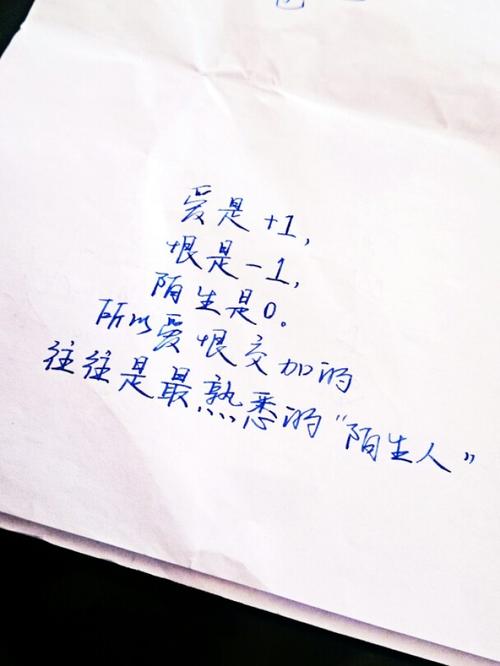 爱是+1,
恨是-1,
陌生是0。
所以爱恨交加的
往往是最熟悉的“陌生人”